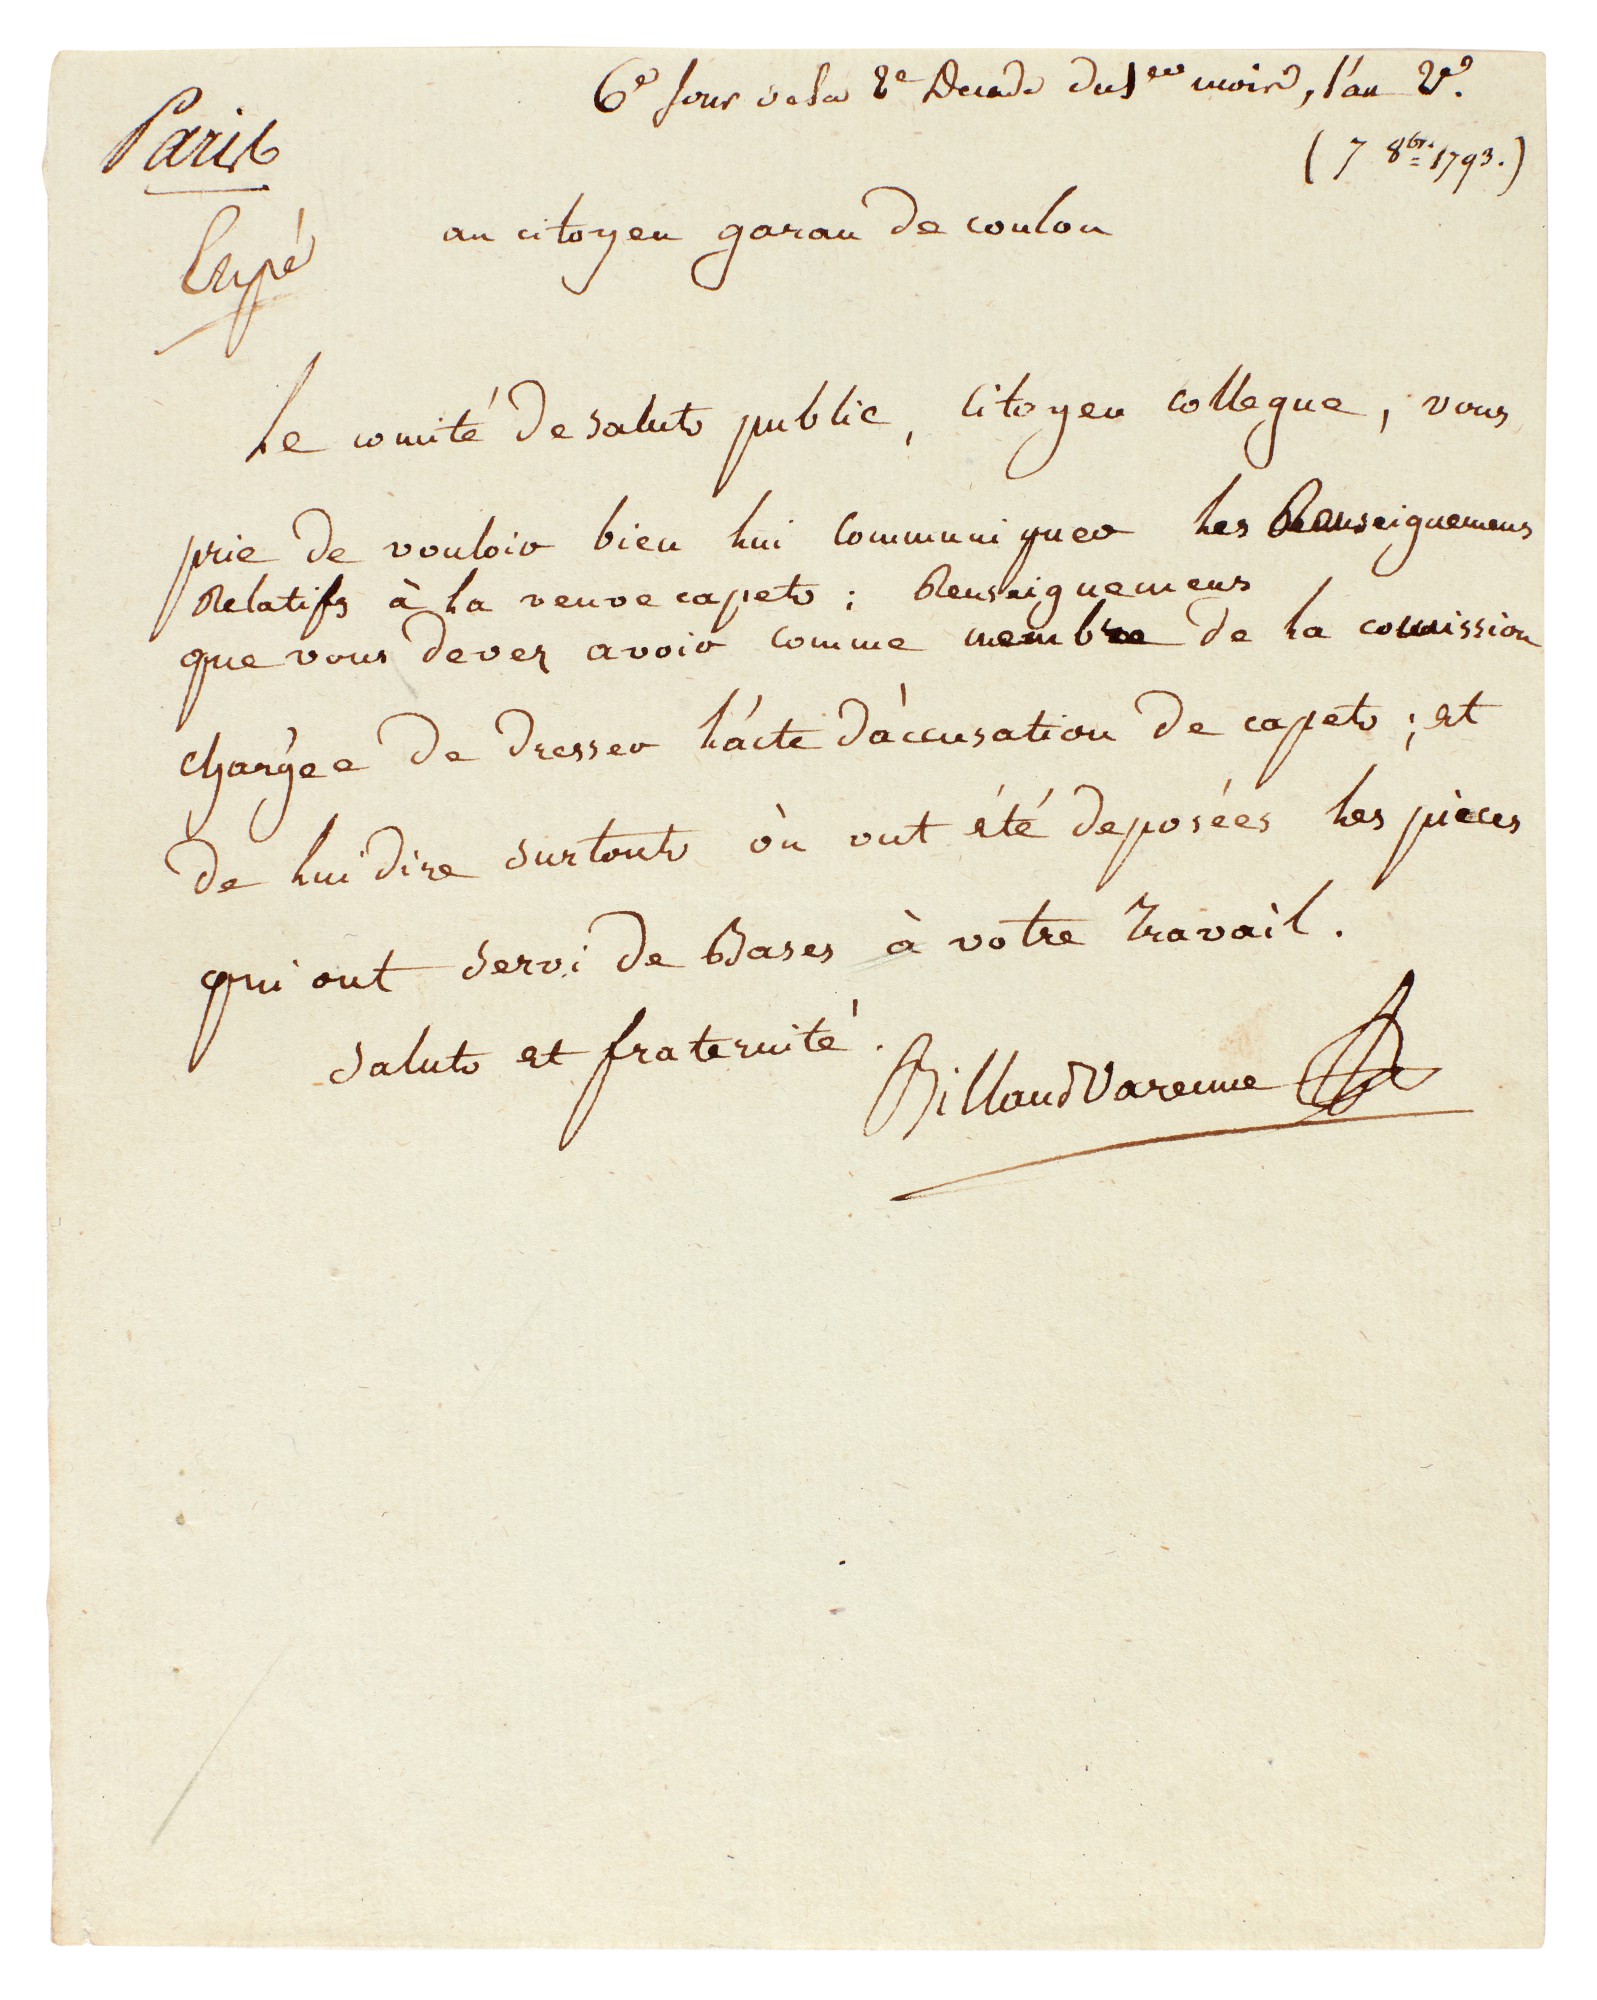 6e Jour de la 2e Decade du 1er mois, l'an 2e.
Paris
(7 8bre. 1793.)
au citoyen garan de coulon
Le comité de salut public, citoyen collegue, vous
prie de vouloir bien lui communiquer les Renseignemens
Relatifs à la veuve capet; Renseignemens
que vous devez avoir comme membre de la commission
chargée de dresser l'acte d'accusation de capet; et
de lui dire surtout où ont été deposées les pièces
qui ont servi de Bases à votre travail.
salut et fraternité.
Billaud Varenne